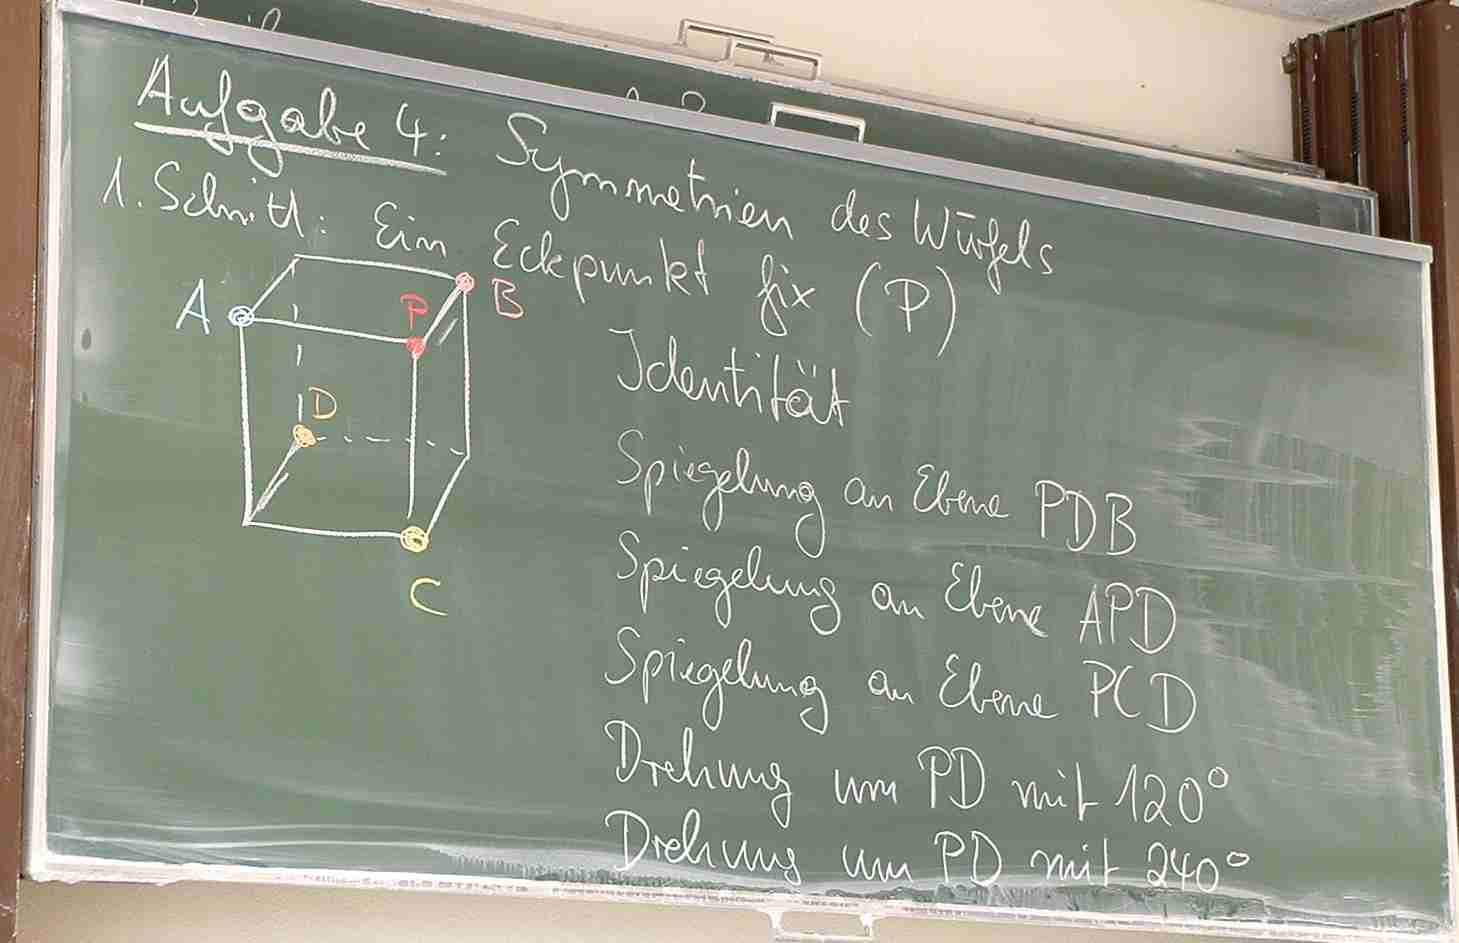 Aufgabe 4: Symmetrien des Würfels
1. Schritt: Ein Eckpunkt fix (P)
A P B
D
C
Identität
Spiegelung an Ebene PDB
Spiegelung an Ebene APD
Spiegelung an Ebene PCD
Drehung um PD mit 120°
Drehung um PD mit 240°